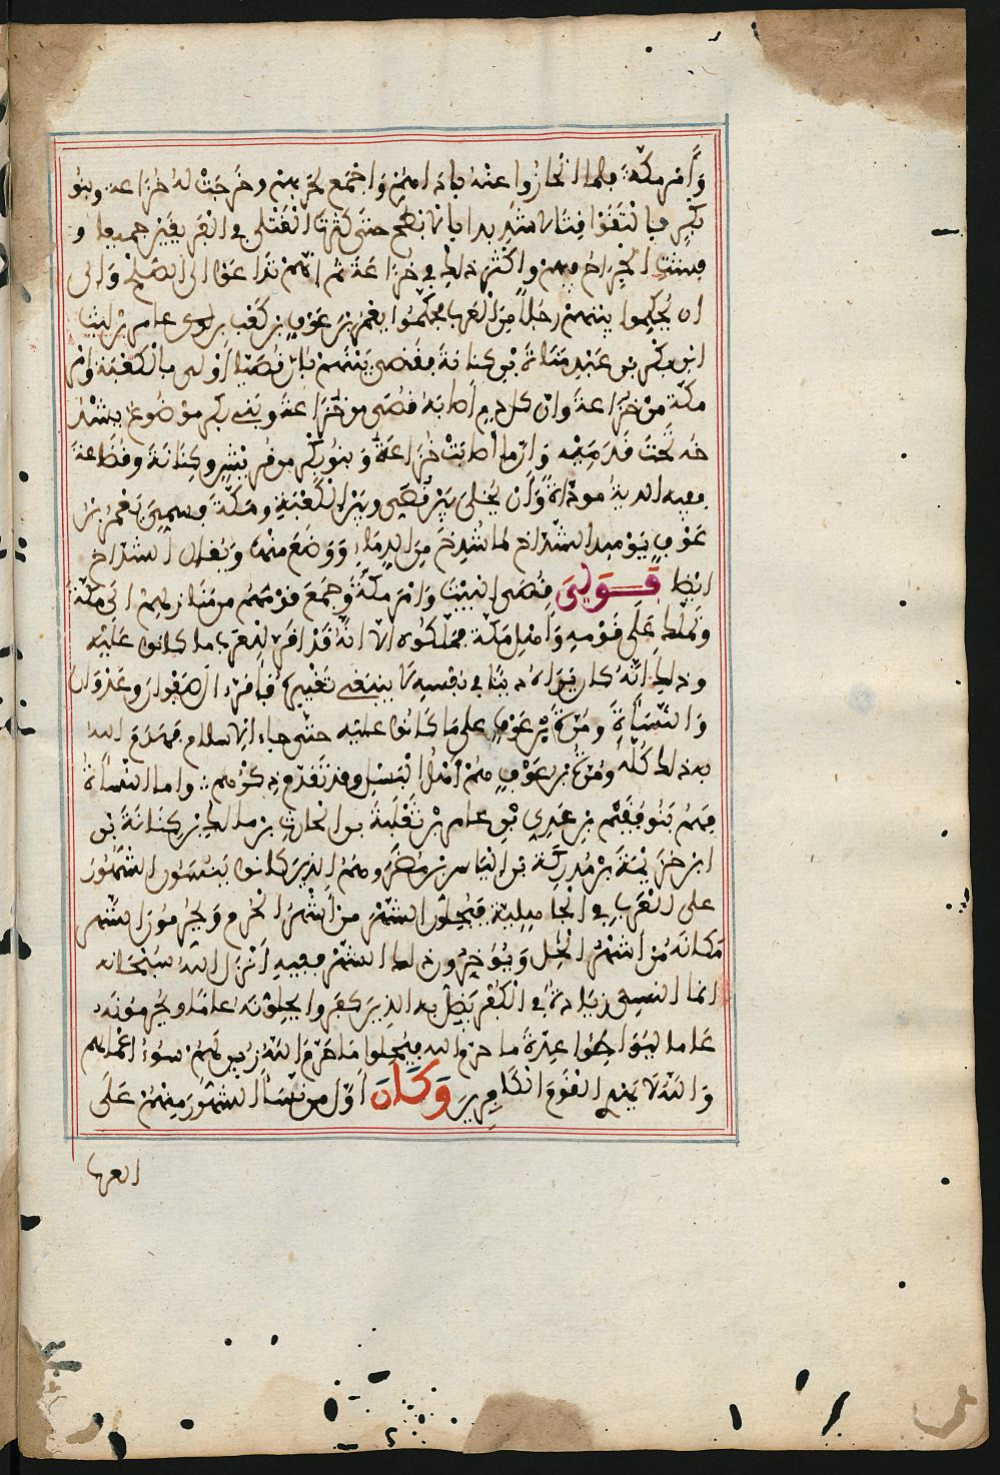 وأمر مكة فلما انحازوا عنه بادأهم وأجمع لحربهم وخرجت له خزاعة وبنو
بكر فالتقوا فقتالا شديدا بالابطح حتى كثرت القتلى في الفريقين جميعا و
فشت الجراح فيهم واكثر ذلك في خزاعة ثم انهم تداعوا الى الصلح والى
ان يحكموا بينهم رجلا من العرب فحكموا يعمر بن عوف بن كعب بن عامر بن ليث
ابن بكر بن عبد مناة بن كنانة فقضى بينهم بان قصيا أولى بالكعبة وامر
مكة من خزاعة وان كل دم اصابه قصى من خزاعة وبني بكر موضوع يشد
خه تحت قدميه وان ما أصابت خزاعة وبنو بكر من قريش وكنانة وقضاعة
ففيه الدية موداة وأن يخلى بين قصي وبين الكعبة ومكة فسمي يعمر بن
عوف يومئذ الشداخ لما شدخ من الدماء ووضع منها ويقال الشداخ
ايضا قولى قصى البيت وامر مكة وجمع قومه من منازلهم الى مكة
وتملك على قومه وأهل مكة فملكوه الا انه قد أقر للعرب ما كانوا عليه
وذلك انه كان يراه دينا في نفسه لا ينبغي تغييره فأقر ءال صفوان وعدوان
والنسأة ومرة بن عوف على ما كانوا عليه حتى جاء الاسلام فهدم الله
به ذلك كله ومرة بن عوف من أهل البسل وقد تقدم ذكرهم واما النسأة
فهم بنو فقيم بن عدي بن عامر بن ثعلبة بن الحارث بن مالك بن كنانة بن
ابن خزيمة بن مدركة بن الياس بن مضر وهم الذين كانوا ينسئون الشهور
على العرب في الجاهلية فيحلون الشهر من أشهر الحرم ويحرمون الشهر
مكانه من اشهر الحل ويؤخرون ذلك الشهر ففيه أنزل الله سبحانه
انما النسيء زيادة في الكفر يضل به الذين كفروا يحلونه عاما ويحرمونه
عاما ليواطئوا عدة ما حرم الله فيحلوا ما حرم الله زين لهم سوء اعمالهم
والله لا يهدي القوم الكافرين وكان أول من نسأ الشهور منهم على
العرب